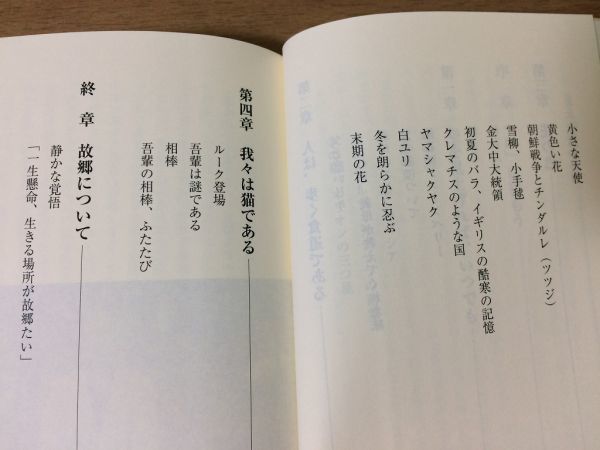 小さな天使
黄色い花
朝鮮戦争とチンダルレ（ツツジ）
雪柳、小手毬
金大中大統領
初夏のバラ、イギリスの酷寒の記憶
クレマチスのような国
ヤマシャクヤク
白ユリ
冬を朗らかに忍ぶ
末期の花
第四章 我々は猫である
ルーク登場
吾輩は謎である
相棒
吾輩の相棒、ふたたび
終 章 故郷について
静かな覚悟
「一生懸命、生きる場所が故郷たい」